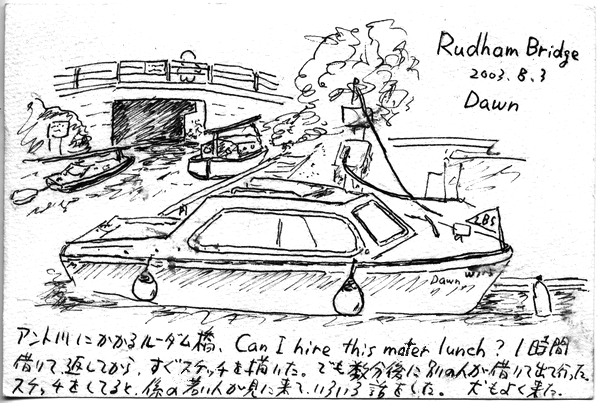 Rudham Bridge
2003.8.3
Dawn
LBS
Dawn
アント川にかかるルーダム橋、Can I hire this moter lunch? 1時間
借りて返してから、すぐスケッチを描いた。でも数分後に別の人が借りて出て行った。
スケッチをしてると、係の若い人が見に来て、いろいろ話をした。 犬もよく来た。